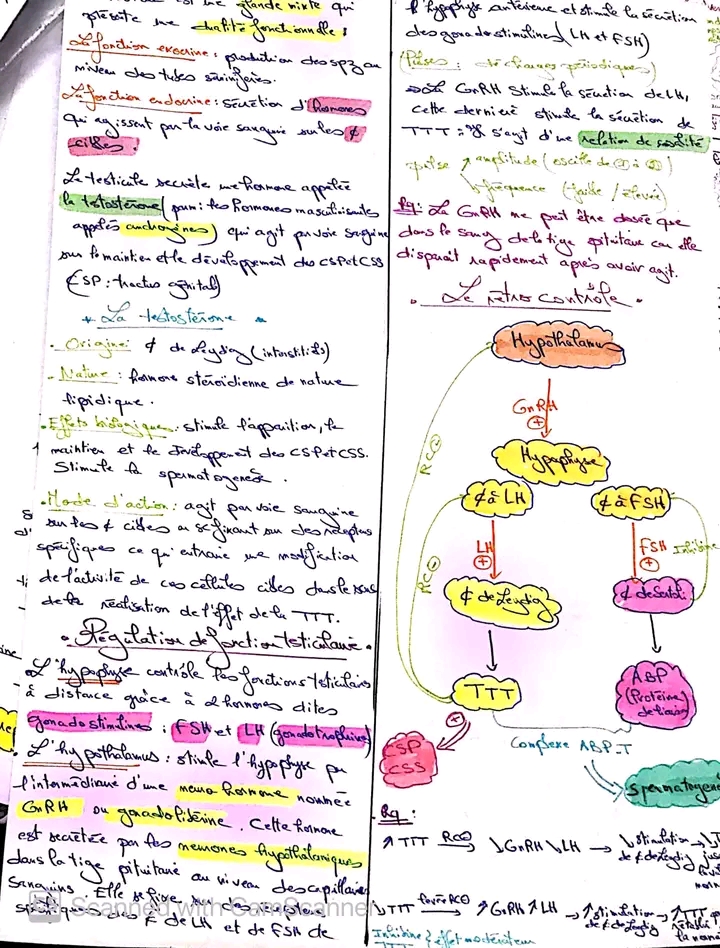 glande mixte qui
présente une dualité fonctionnelle :
La fonction exocrine : production des spz au
niveau des tubes séminifères.
La fonction endocrine : sécrétion d'hormones
qui agissent par la voie sanguine sur les ¢
cibles.
Le testicule secrète une hormone appelée
la testostérone (parmi les hormones masculinisantes
appelés androgènes) qui agit par voie sanguine
sur le maintien et le développement des CSP et CSS
(ESP : tractus génital)
* La testostérone
. Origine : ¢ de Leydig (interstitiels)
. Nature : hormone stéroïdienne de nature
lipidique.
. Effets biologiques : stimule l'apparition, le
maintien et le développement des CSP et CSS.
Stimule la spermatogenèse.
. Mode d'action : agit par voie sanguine
sur les ¢ cibles en se fixant sur des récepteurs
spécifiques ce qui entraine une modification
de l'activité de ces cellules cibles dans le sens
de la réalisation de l'effet de la TTT.
. Régulation de fonction testiculaire .
. L'hypophyse contrôle les fonctions testiculaires
à distance grâce à 2 hormones dites
gonadostimulines : FSH et LH (gonadotrophines)
. L'hypothalamus : stimule l'hypophyse par
l'intermédiaire d'une neuro hormone nommée
GnRH ou gonadolibérine. Cette hormone
est secrétée par les neurones hypothalamiques
dans la tige pituitaire au niveau des capillaires
sanguins. Elle se fixe sur des
spécifiques des ¢ de LH et de FSH de
l'hypophyse antérieure et stimule la sécrétion
des gonadostimulines (LH et FSH)
(Pulses : décharges périodiques)
La GnRH stimule la sécrétion de LH,
cette dernière stimule la sécrétion de
TTT : il s'agit d'une relation de causalité
pulse amplitude
fréquence (faible / élevée)
Rq : La GnRH ne peut être dosée que
dans le sang de la tige pituitaire car elle
disparait rapidement après avoir agit.
. Le rétrocontrôle .
Hypothalamus
GnRH
+
RC⊖
Hypophyse
¢ à LH
¢ à FSH
RC⊖
LH
+
FSH
+
Inhibine
¢ de Leydig
¢ de Sertoli
TTT
ABP
(Protéine
de liaison
+
CSP
CSS
Complexe ABP-T
spermatogenè
Rq :
↗ TTT RC⊖ → ↘ GnRH ↘ LH → ↘ stimulation →
de ¢ de Leydig
↘ TTT RC⊖ → ↗ GnRH ↗ LH → ↗ stimulation → ↗ TTT
de ¢ de Leydig
Inhibine : effet modérateur
Scanned with CamScanner